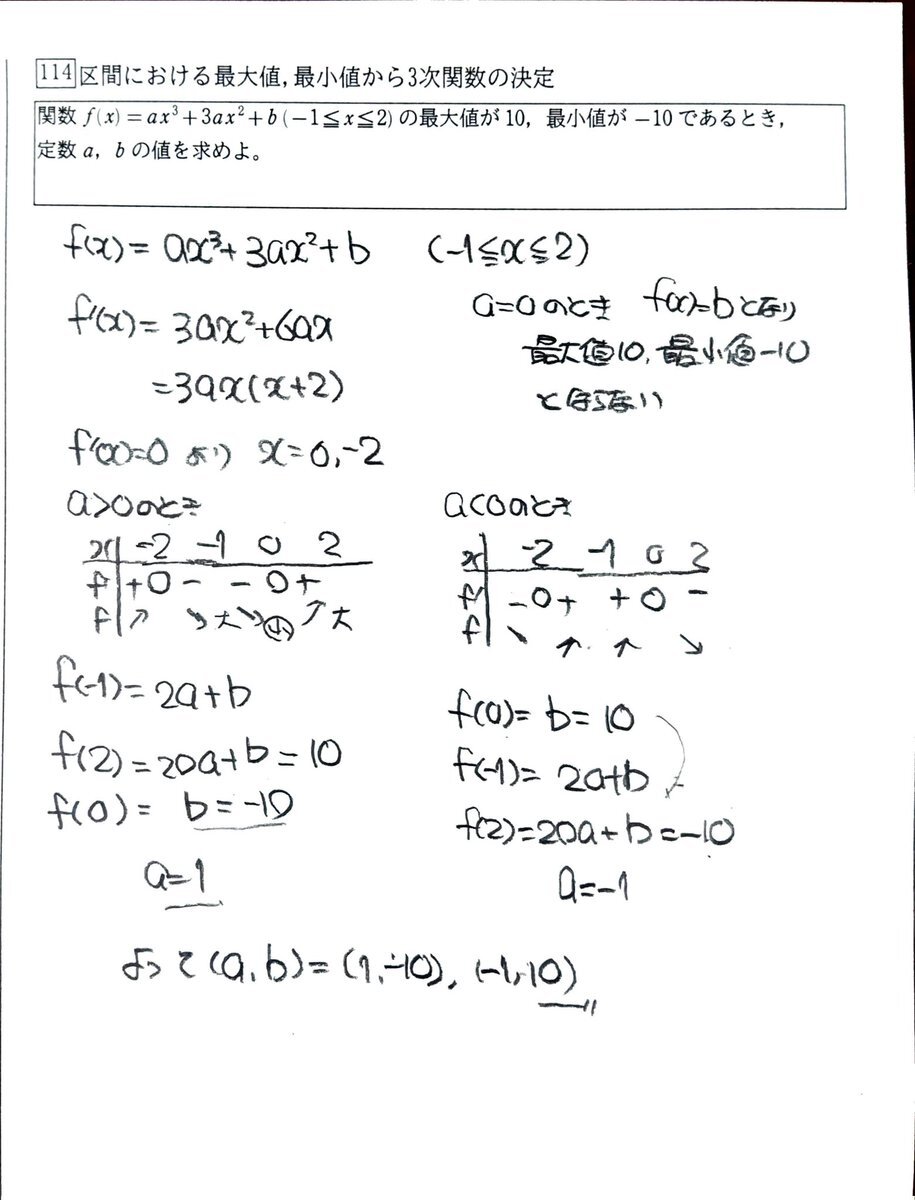 114 区間における最大値, 最小値から3次関数の決定
関数 f(x)=ax³+3ax²+b (−1≦x≦2) の最大値が 10, 最小値が −10 であるとき,
定数 a, b の値を求めよ。
f(x)= ax³+3ax²+b (-1≦x≦2)
f'(x)=3ax²+6ax
=3ax(x+2)
f'(x)=0 より x=0,-2
a=0のとき f(x)=bとなり
最大値10, 最小値-10
とならない
a>0のとき
x -2 -1 0 2
f' +0 - - 0+
f ↗ ↘大↘小↗大
f(-1)=2a+b
f(2)=20a+b=10
f(0)= b=-10
a=1
a<0のとき
x -2 -1 0 2
f' -0+ +0 -
f ↘ ↗ ↗ ↘
f(0)= b=10
f(-1)= 2a+b
f(2)=20a+b=-10
a=-1
よって(a,b)=(1,-10), (-1,10)